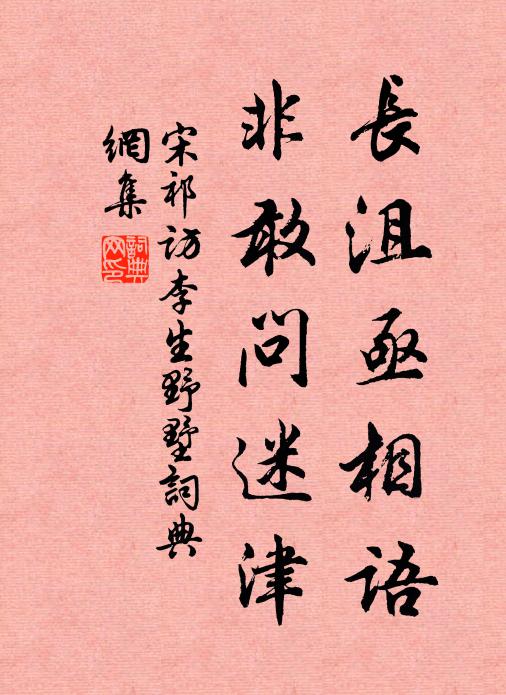 長沮亟相語
非敢問迷津
宋祁訪李生野墅詞典
網集
詞典
网印